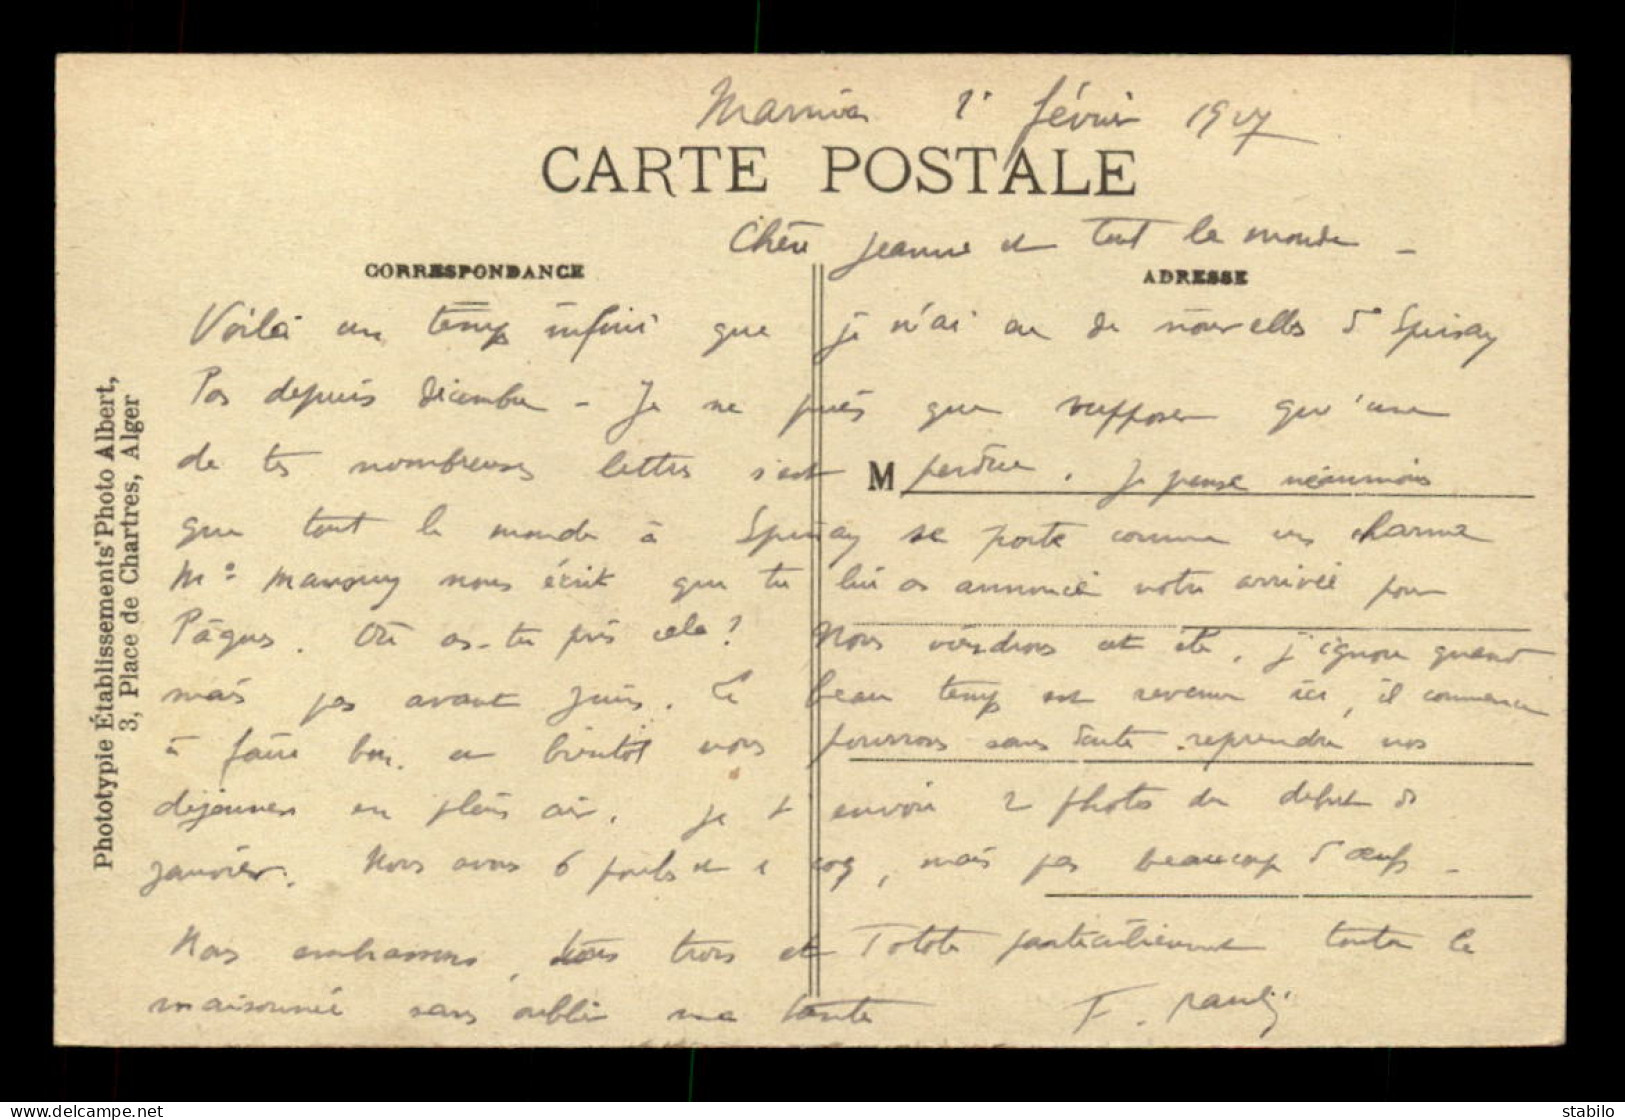 Marnia 1r février 1907
CARTE POSTALE
Chère Jeanne et tout le monde -
CORRESPONDANCE
ADRESSE
Voilà un temps infini que je n'ai eu de nouvelles d'Epinay
Pas depuis décembre - Je ne puis que supposer qu'une
de tes nombreuses lettres s'est M perdue. Je pense néanmoins
que tout le monde à Epinay se porte comme un charme
Me nous écrit que tu lui as annoncé votre arrivée pour
Pâques. Où as-tu pris cela? Nous viendrons cet été, j'ignore quand
mais pas avant Juin. Le beau temps est revenu ici, il commence
à faire bon. et bientôt nous pourrons sans doute reprendre nos
déjeuners en plein air. Je t'envoie 2 photos du début de
janvier. Nous avons 6 poules et 1 coq, mais pas beaucoup d'œufs -
Nous embrassons, tous trois et Totote particulièrement toute la
maisonnée sans oublier ma tante F.
Phototypie Établissements Photo Albert,
3, Place de Chartres, Alger
stabilo